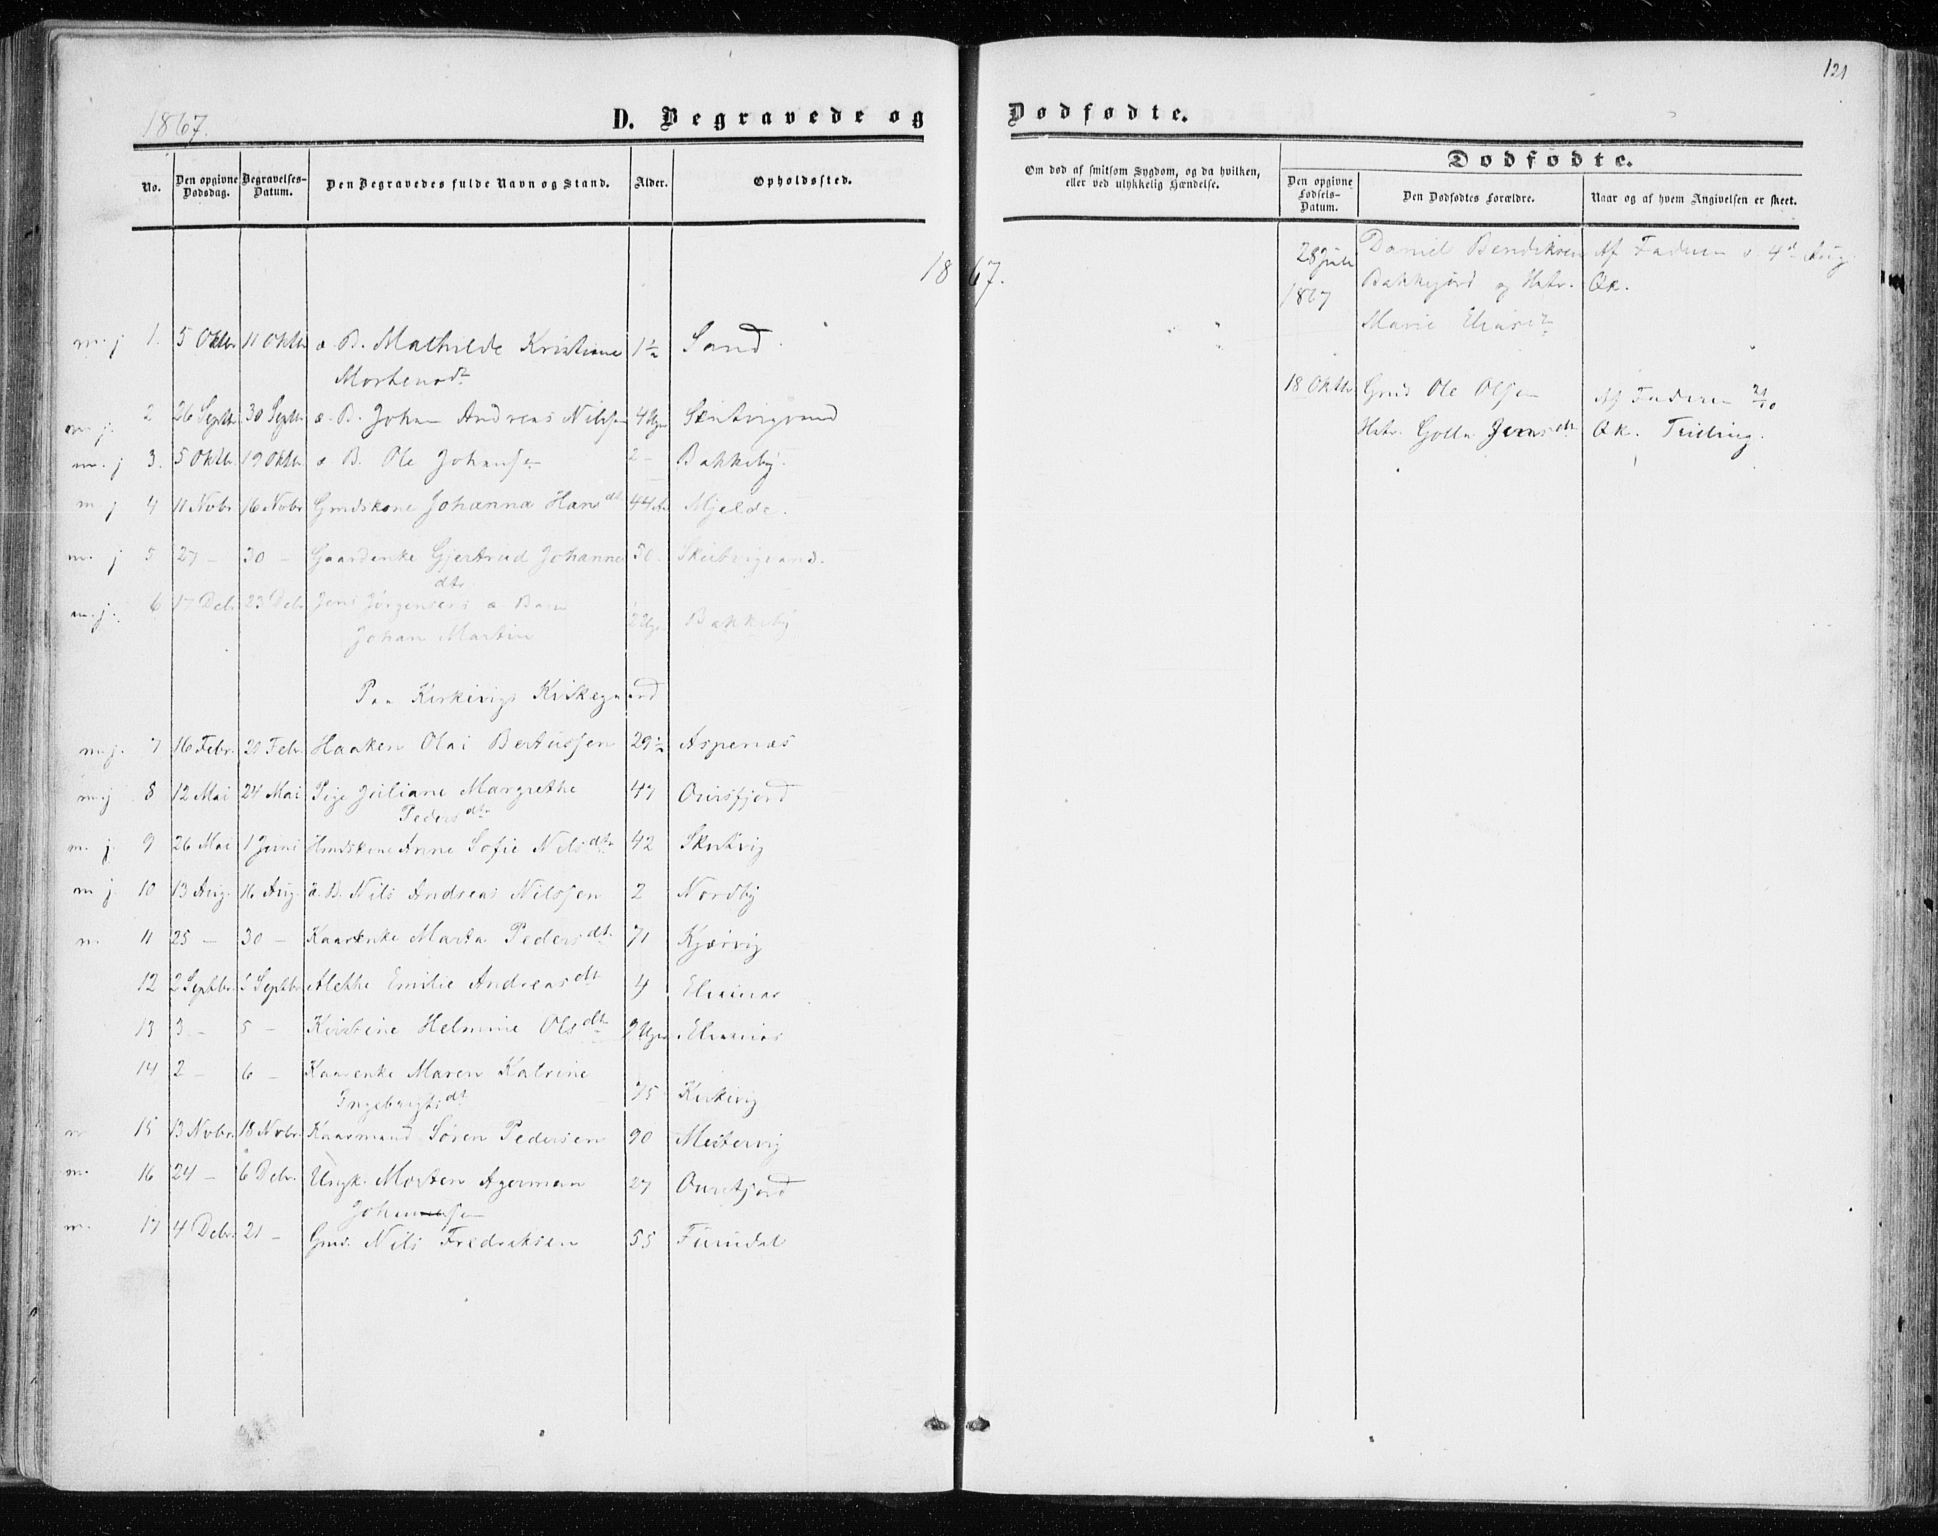 121
1867.
D. Begravede og Dødfødte.
No. Den opgivne Dødsdag. Begravelses-Datum. Den Begravedes fulde Navn og Stand. Alder. Opholdssted.
Om død af smitsom Sygdom, og da hvilken, eller ved ulykkelig Hændelse.
Dødfødte.
Den opgivne Fødsels-Datum. Den Dødfødtes Forældre. Naar og af hvem Angivelsen er skeet.
1867.
m. j 1. 5 Oktbr 11 Oktbr æ. B. Mathilde Kristiane 1½ Sand
Mortensdt
m. j. 2 26 Septbr 30 Septbr æ. B. Johan Andreas Nilssen 4 Uger Skutvigvand
m. j 3. 5 Oktbr. 19 Oktbr. æ B. Ole Johansen 2 - Bakkeby.
m j 4 11 Novbr 16 Novbr Gmdskone Johanna Hansdt 44 Mjelde.
m. j 5 27 - 30 - Gaardenke Gjertrud Johanne 50. Skutvigvand.
dtr
m. j. 6 17 Debr 23 Debr Jens Jørgensens æ Barn
Johan Martin 2 Ugr Bakkeby
Paa Kirkevigs Kirkegaard
m. j. 7 16 Febr. 21 Febr. Haaken Olai Bertussen 29½ Aspenæs
m. j 8 12 Mai 24 Mai Pige Juliane Margrethe 47 Oursfjord
Pedersdtr
m. j. 9 26 Mai 1 Juni Hmdskone Anne Sofie Nilsdtr 42 Skutvig
m j. 10 13 Aug. 16 Aug. æ. B. Nils Andreas Nilssen 2 Nordby
m. 11 25 - 30 - Kaarenke Marta Pedersdt. 71 Kjørvig
12 2 Septbr. 5 Septbr Alethe Emilie Andreasdt 4
13 3 - 5 - Kristine Helmine Olsdtr
14 2 - 6 - Kaarenke Maren Katrine
Ingebrigtsdt 75 Kirkevig
m 15 13 Novbr. 18 Novbr. Kaarmand Søren Pedersen 90 Meistervig
m. 16 24 - 6 Debr. Ungk. Morten Agerman 27 Oursfjord
Johannesen
m. 17 4 Debr. 21 - Gmd. Nils Fredriksen 55
28 Juli Daniel Bendiksen Af Faderen d. 4d Aug.
1867 Bakkejord og Hstr. Qk.
Marie Eliasdt
18 Oktbr Gmd Ole Olsen Af Faderen 21/10
Hstr. Jensdt. Qk. Tvilling.